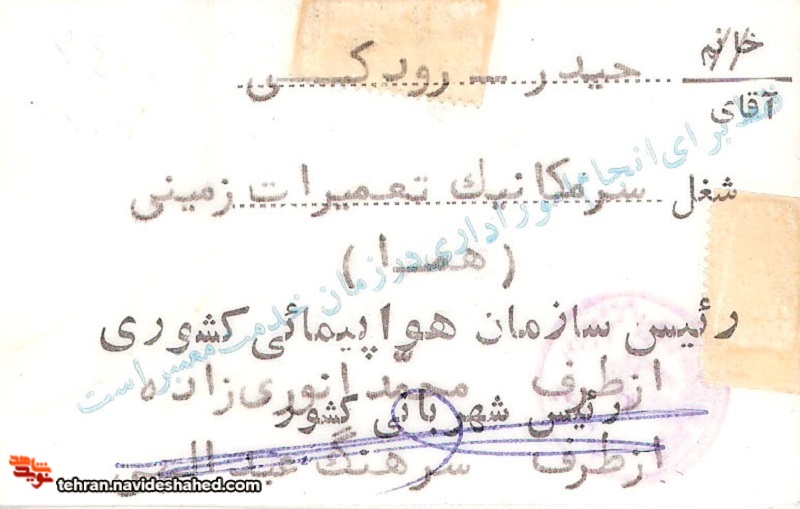 خانم
آقای
حیدر - رودکی
شغل سرمکانیك تعمیرات زمینی
(هما)
رئیس سازمان هواپیمائی کشوری
ازطرف محمد انوری زاده
رئیس شهربانی کشور
ازطرف سرهنگ
فقط برای انجام امور اداری در زمان خدمت معتبر است
نوید شاهد
tehran.navideshahed.com